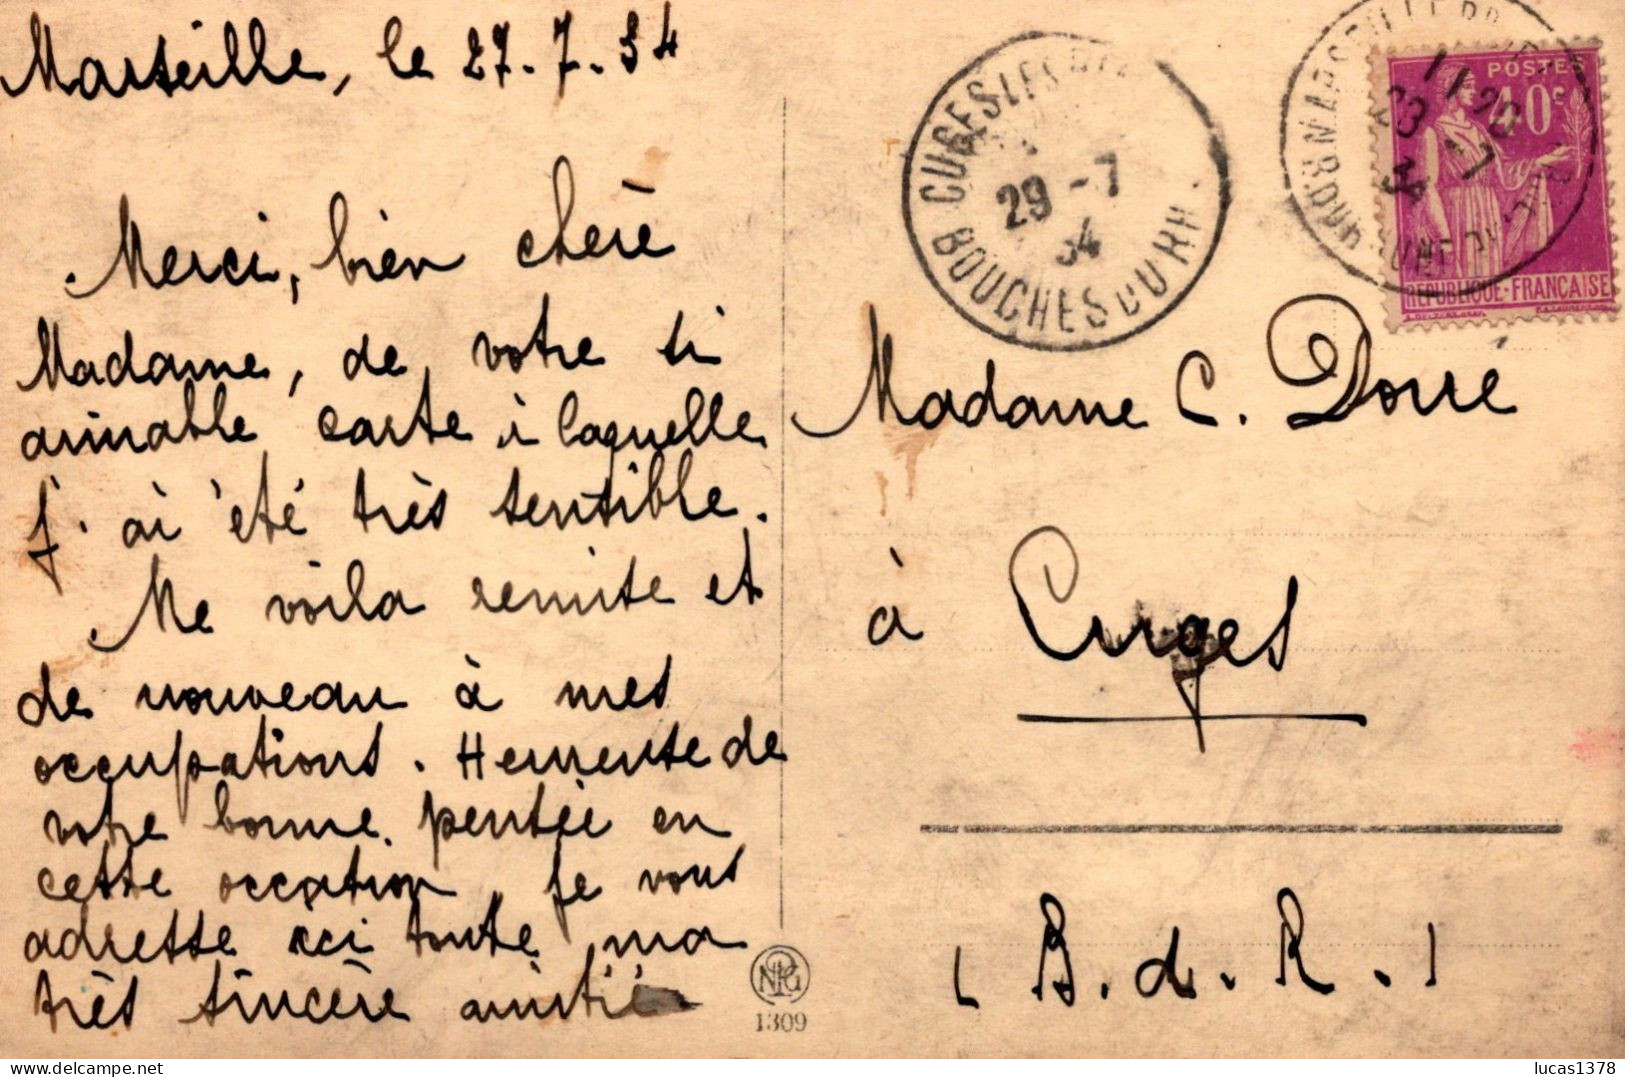 Marseille, le 27.7.34
Merci, bien chère
Madame, de votre si
aimable carte à laquelle
j'ai été très sensible.
Me voila remise et
de nouveau à mes
occupations. Hemente de
votre bonne pensée en
cette occasion, je vous
adresse ici toute ma
très sincère amitié
NPG
1309
CUGES-LES-
29 -7
34
BOUCHES DU RH
POSTES
40c
REPUBLIQUE-FRANÇAISE
11 20
28 -7
34
Madame C. Dorré
à Cuges
(B.d.R.)
delcampe.net
lucas1378